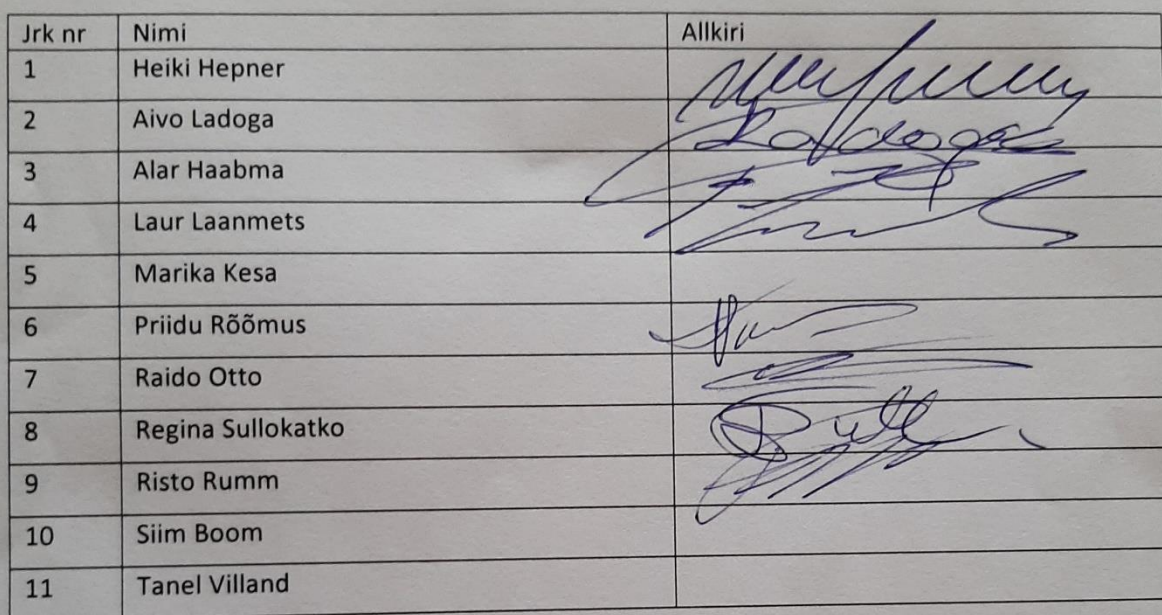 Jrk nr Nimi Allkiri
1 Heiki Hepner
2 Aivo Ladoga Ladoga
3 Alar Haabma
4 Laur Laanmets
5 Marika Kesa
6 Priidu Rõõmus
7 Raido Otto
8 Regina Sullokatko
9 Risto Rumm
10 Siim Boom
11 Tanel Villand